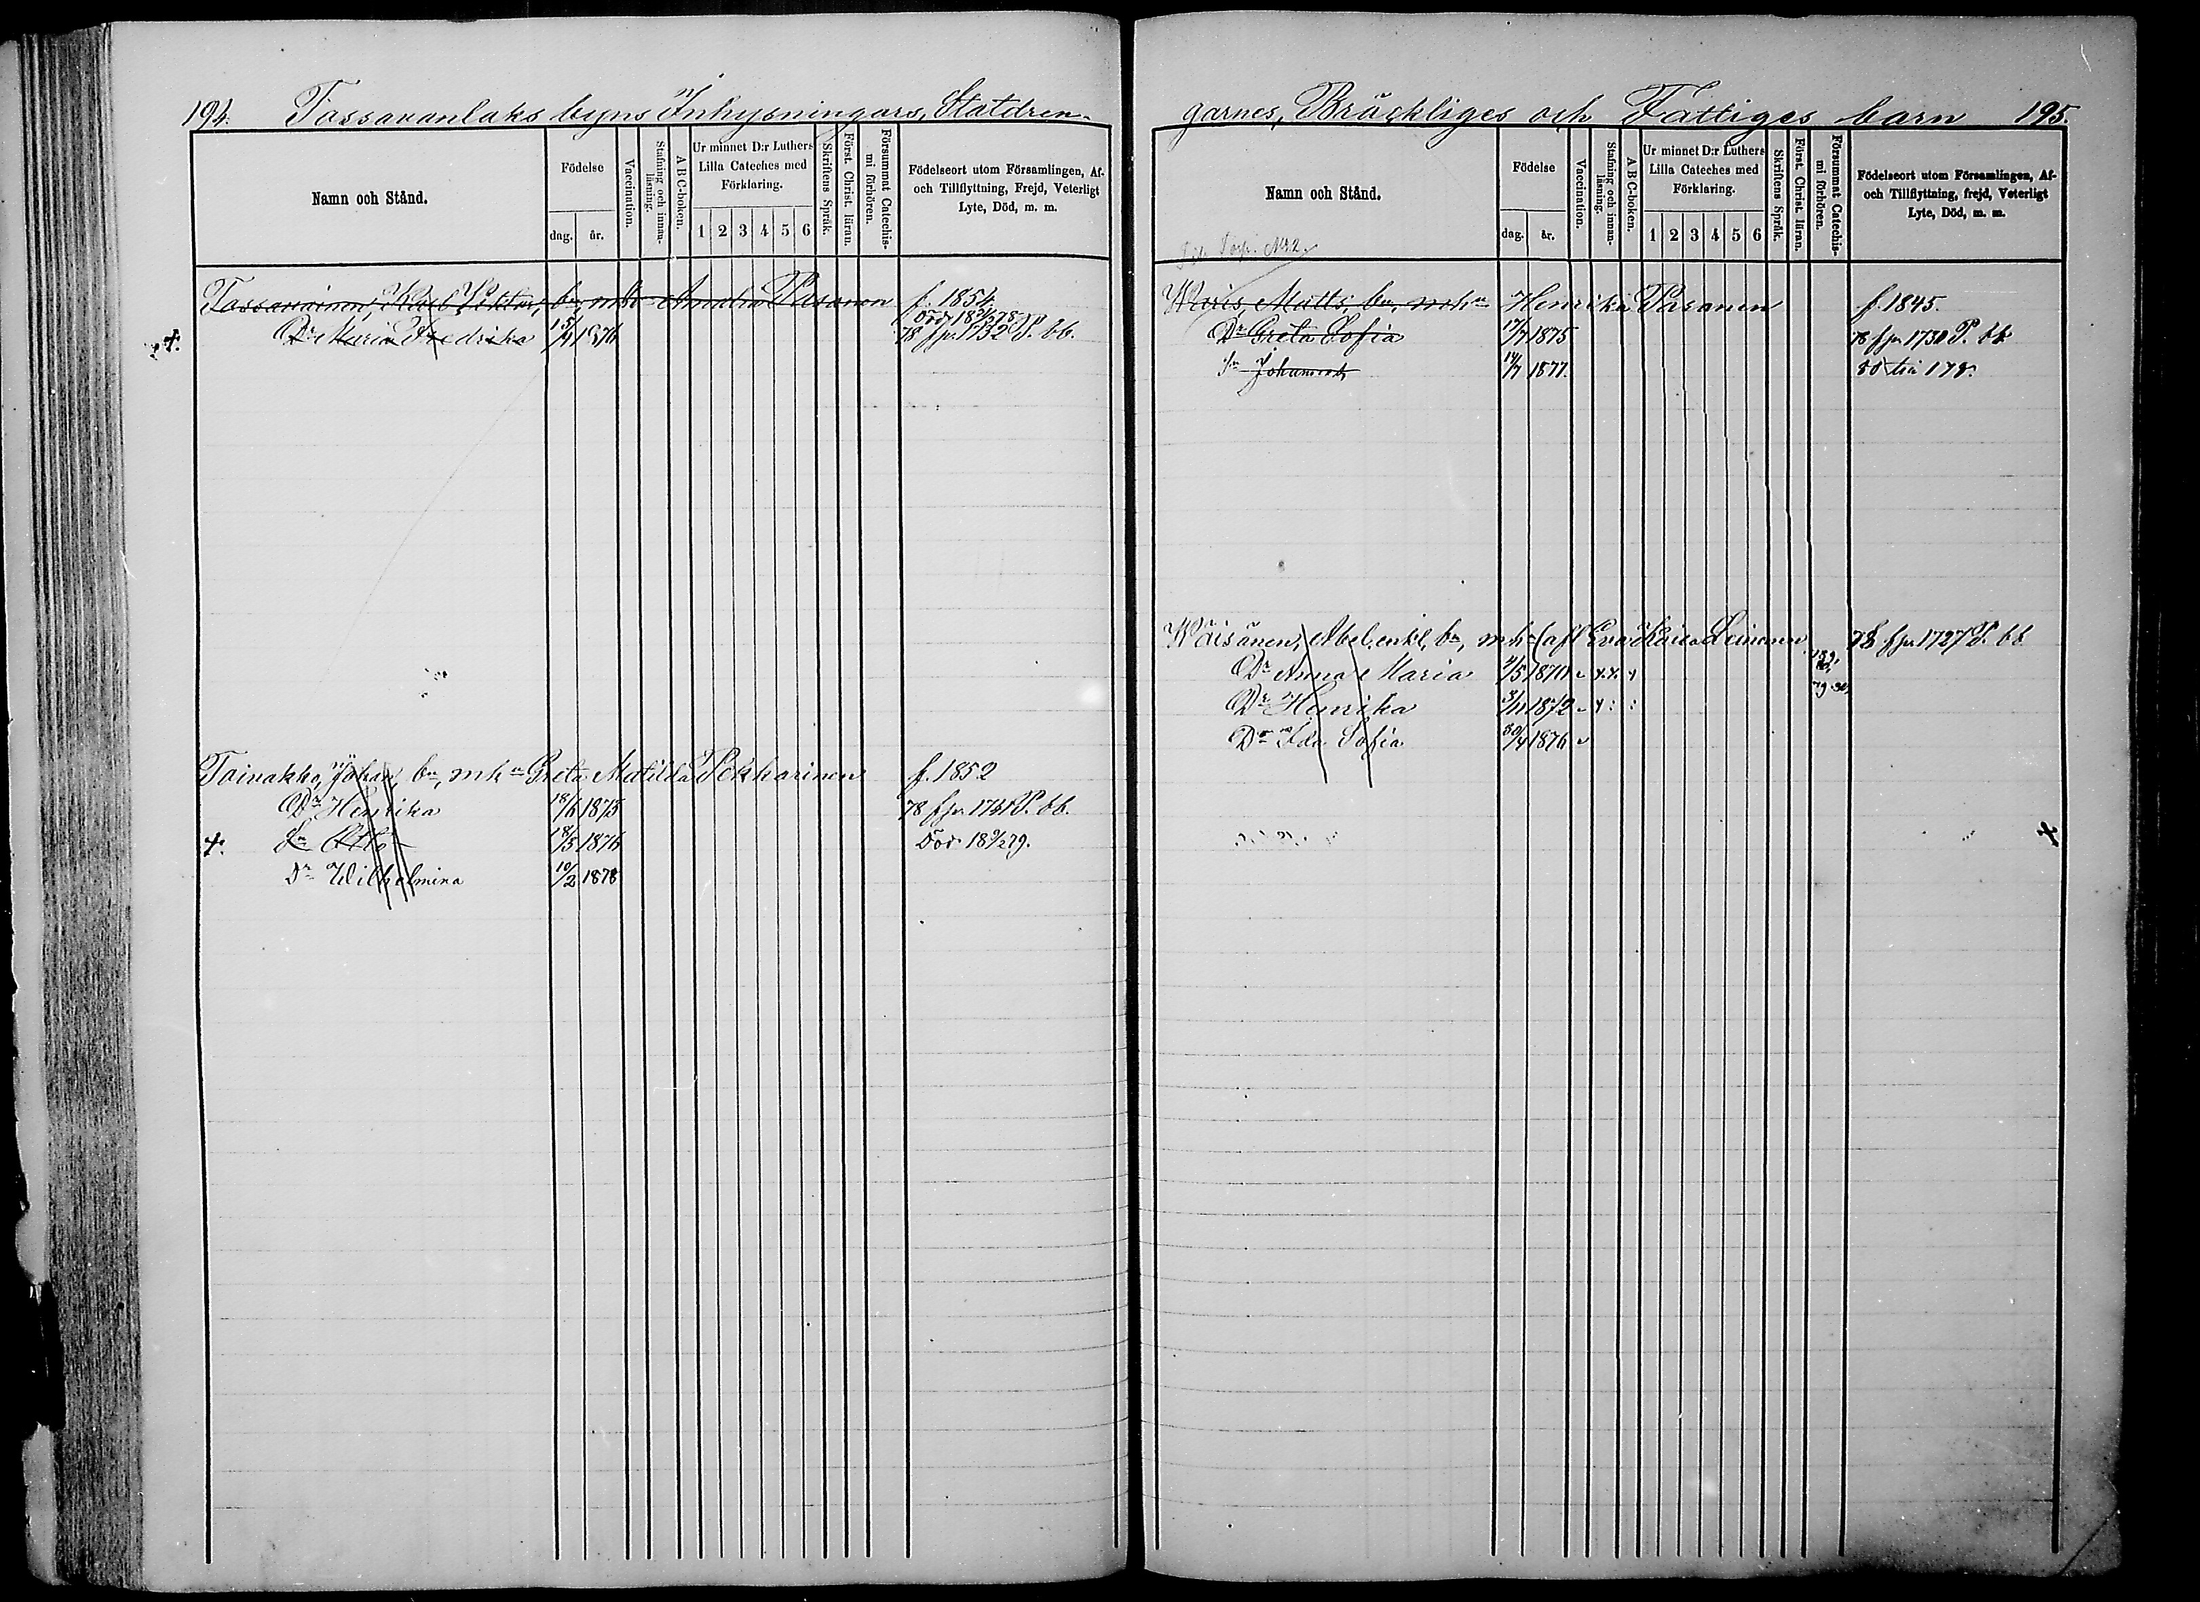 194. Tassavanlaks byns Inhysningars, Statdren-
Namn och Stånd.
Födelse
dag. år.
Vaccination.
Stafning och innan-läsning.
A B C-boken.
Ur minnet D:r Luthers
Lilla Cateches med
Förklaring.
1 2 3 4 5 6
Skriftens Språk.
Först. Christ. läran.
Försummat Catechis-mi förhören.
Födelseort utom Församlingen, Af-
och Tillflyttning, Frejd, Veterligt
Lyte, Död, m. m.
Tassavainen, Viktor, bn, mh Amalia Pasanen f. 1854
Dr Maria Fredrika 15/4 1876 78 fr 1732 P. bb.
Toivakka, Johan, bn, mhu Greta Matilda Pekkarinen f. 1852
Dr Henrika 18/6 1875 78 fr. 1741 P. bb.
Sn Otto 18/5 1876 Död 18 79.
Dr Wilhelmina 10/2 1878
garnes, Bräckliges och Fattiges barn 195.
Namn och Stånd.
Födelse
dag. år.
Vaccination.
Stafning och innan-läsning.
A B C-boken.
Ur minnet D:r Luthers
Lilla Cateches med
Förklaring.
1 2 3 4 5 6
Skriftens Språk.
Först. Christ. läran.
Försummat Catechis-mi förhören.
Födelseort utom Församlingen, Af-
och Tillflyttning, frejd, Veterligt
Lyte, Död, m. m.
Matts, bn, mhu Henrika Pasanen f. 1845.
Dr Greta Sofia 17/7 1875 78 fr 1730 P. bb
Sn Johannes 14/7 1877. 80 till 178.
Wäisänen, Abel, enkl, bn, mh (afl Eva Kaisa Leinonen 78 fr 1727 P. bb
Dr Anna Maria /5 1870
Dr Henrika /11 1872
Dr Ida Sofia 30/4 1876